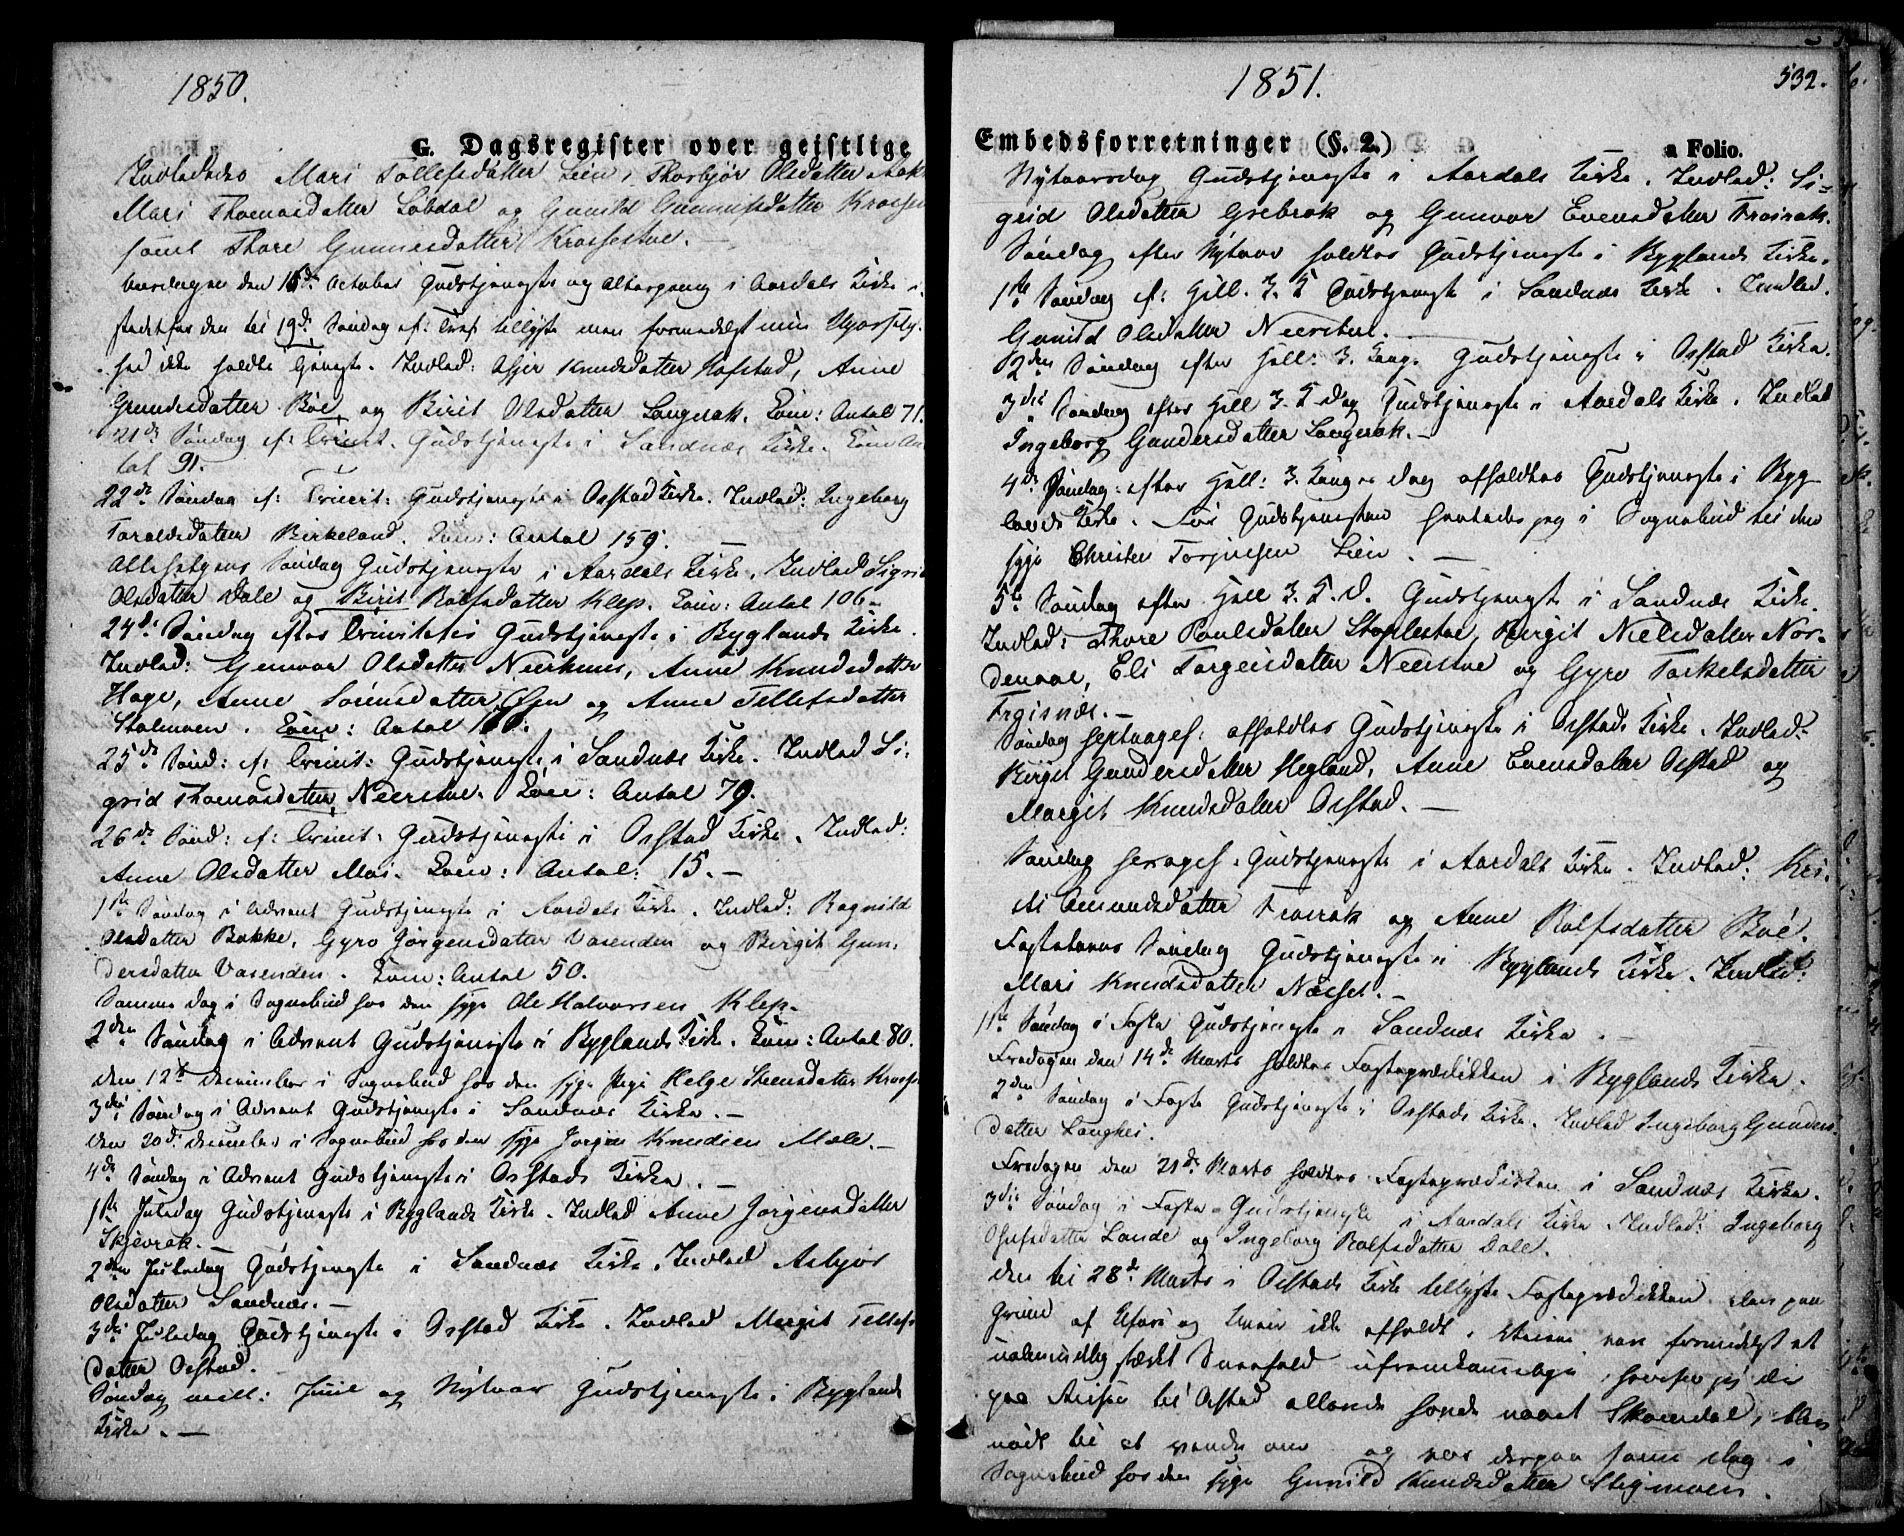 1850.
G. Dagsregister over geistlige
Indlededes Mari Tollefsdatter Lien, Thorbjør Olsdatter
Mari Thomasdatter Løbdal og Gunild Gunnufsdatter
samt Thore Gunnufsdatter Krossestue.
Torsdagen den October Gudstjeneste og Altergang i Aardals Kirke i
stedetfor den til 19de Søndag ef: Trinit tillyste men formedelst min Upasselig-
hed ikke holdte Tjeneste. Indled: Knudsdatter Hofstad, Anne
datter Bøe og Birit Olsdatter Langerak. Com: Antal 71.
21de Søndag ef: Trinit. Gudstjeneste i Sandnæs Kirke. Com: An-
tal 91.
22de Søndag ef: Trinit: Gudstjeneste i Ostad Kirke. Indled: Ingeborg
Taraldsdatter Birkeland. Com: Antal 159.
Allehelgens Søndag Gudstjeneste i Aardals Kirke. Indled Sigrid
Olsdatter Dale og Birit Rolfsdatter Klep. Com: Antal 106.
24de Søndag efter Trinitatis Gudstjeneste i Byglands Kirke.
Indled: Gunvor Olsdatter Neerhuus, Anne Knudsdatter
Hage, Anne Sørensdatter Øen og Anne Tellefsdatter
Stalmoen. Com: Antal
25de Sønd: ef: Trinit: Gudstjeneste i Sandnæs Kirke. Indled Si-
grid Thomasdatter Neerstue. Com: Antal 79.
26de Sønd: ef: Trinit: Gudstjeneste i Ostad Kirke. Indled:
Anne Olsdatter Moi. Com: Antal: 15. —
1ste Søndag i Advent Gudstjeneste i Aardals Kirke. Indled: Ragnild
Olsdatter Bakke, Gyro Jørgensdatter Vasenden og Birgit Gun-
dersdatter Vasenden. Com: Antal 50.
Samme Dag i Sognebud hos den syge Ole Halvorsen Klep.
2den Søndag i Advent Gudstjeneste i Byglands Kirke. Com: Antal 80.
den 12te December i Sognebud hos den syge Pige Helge Steensdatter
3die Søndag i Advent Gudstjeneste i Sandnæs Kirke. —
den 20de December i Sognebud hos den syge Jørgen Knudsen Mæle. —
4de Søndag i Advent Gudstjeneste i Ostads Kirke. —
1ste Juledag Gudstjeneste i Byglands Kirke. Indled Anne Jørgensdatter
Skjevrak.
2den Juledag Gudstjeneste i Sandnæs Kirke. Indled Asbjør
Olsdatter Sandnæs. —
3die Juledag Gudstjeneste i Ostad Kirke. Indled Margit Tellefs-
datter Ostad.
Søndag mell: Juul og Nytaar Gudstjeneste i Byglands
Kirke. —
1851.
532.
Embedsforretninger (§. 2.)
a Folio.
Nytaarsdag Gudstjeneste i Aardals Kirke. Indled: Si-
grid Olsdatter Grebrok og Gunvor Evensdatter Frøirak.
Søndag efter Nytaar holdtes Gudstjeneste i Byglands Kirke.
1ste Søndag ef: Hell. 3. K Gudstjeneste i Sandnæs Kirke. Indled.
Gunild Olsdatter Neerstue.
2den Søndag efter Hell: 3. Kong. Gudstjeneste i Ostad Kirke.
3die Søndag efter Hell 3. K Dag Gudstjeneste i Aardals Kirke. Indled
Ingeborg Gundersdatter Langerak. —
4de Søndag efter Hell: 3. Konge Dag afholdtes Gudstjeneste i Byg-
lands Kirke. Før Gudstjenesten hentedes jeg i Sognebud til den
syge Christen Torjussen Lien. —
5te Søndag efter Hell 3. K. D. Gudstjeneste i Sandnæs Kirke.
Indled: Thore Poulsdatter Stoplestue, Birgit Nielsdatter Nor-
denaae, Eli Torgeisdatter Neerstue og Gyro Torkelsdatter
Frøisnæs. —
Søndag Septuages: afholdtes Gudstjeneste i Ostads Kirke. Indled:
Birget Gundersdatter Hegland, Anne Evensdatter Ostad og
Margit Knudsdatter Ostad. —
Søndag Sexages: Gudstjeneste i Aardals Kirke. Indled: Kri-
sti Amundsdatter Frøirak og Anne Rolfsdatter Bøe.
Fastelavns Søndag Gudstjeneste i Byglands Kirke. Indled:
Mari Knudsdatter Næsset. —
1ste Søndag i Faste Gudstjeneste i Sandnæs Kirke. —
Fredagen den 14de Marts holdtes Fasteprædikken i Byglands Kirke.
2den Søndag i Faste Gudstjeneste i Ostads Kirke. Indled Ingeborg Gunders-
datter Langhei.
Fredagen den 21de Marts holdtes Fasteprædikken i Sandnæs Kirke.
3die Søndag i Faste Gudstjeneste i Aardals Kirke. Indled: Ingeborg
Olufsdatter Lande og Ingeborg Rolfsdatter Dale.
Den til 28de Marts i Ostads Kirke tillyste Fasteprædikken blev paa
Grund af Uføre og Uveir ikke afholdt. Veien var formedelst et
ualmindelig stærkt Sneefald ufremkommelig, hvorfor jeg der
paa Reisen til Ostad allerede havde naaet Skomedal, blev
nødt til at vende om og var derpaa samme Dag i
Sognebud hos den syge Gunild Knudsdatter Stigmoen.